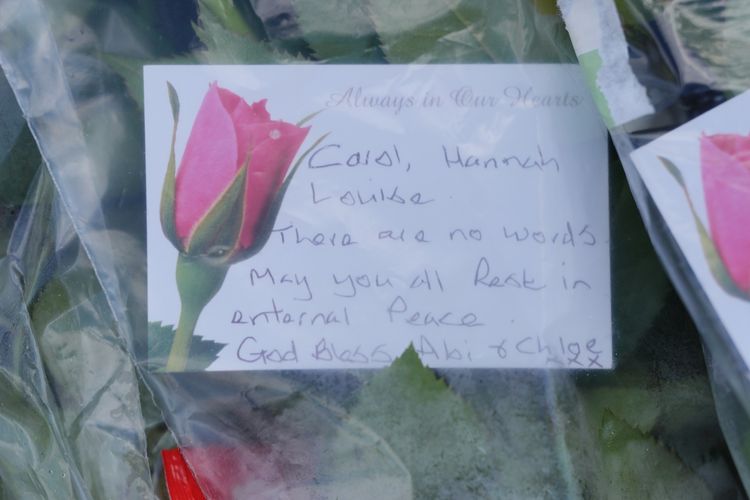 Always in Our Hearts
Carol, Hannah
Louise.
There are no words.
May you all Rest in
enternal Peace.
God Bless Abi & Chloe
xxx